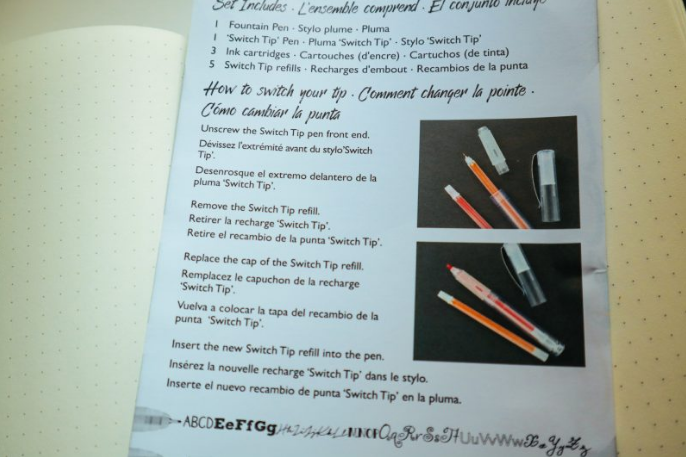 Set Includes · L'ensemble comprend · El conjunto incluye
1 Fountain Pen · Stylo plume · Pluma
1 'Switch Tip' Pen · Pluma 'Switch Tip' · Stylo 'Switch Tip'
3 Ink cartridges · Cartouches (d'encre) · Cartuchos (de tinta)
5 Switch Tip refills · Recharges d'embout · Recambios de la punta
How to switch your tip · Comment changer la pointe ·
Cómo cambiar la punta
Unscrew the Switch Tip pen front end.
Dévissez l'extrémité avant du stylo'Switch
Tip'.
Desenrosque el extremo delantero de la
pluma 'Switch Tip'.
Remove the Switch Tip refill.
Retirer la recharge 'Switch Tip'.
Retire el recambio de la punta 'Switch Tip'.
Replace the cap of the Switch Tip refill.
Remplacez le capuchon de la recharge
'Switch Tip'.
Vuelva a colocar la tapa del recambio de la
punta 'Switch Tip'.
Insert the new Switch Tip refill into the pen.
Insérez la nouvelle recharge 'Switch Tip' dans le stylo.
Inserte el nuevo recambio de punta 'Switch Tip' en la pluma.
ABCDEeFfGg